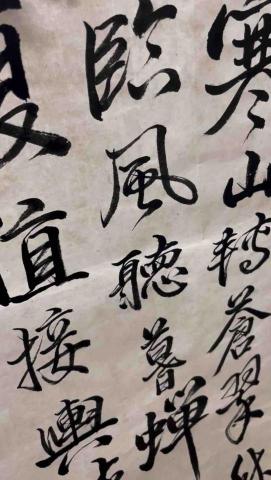 寒山轉蒼翠秋
臨風聽暮蟬
復值接輿